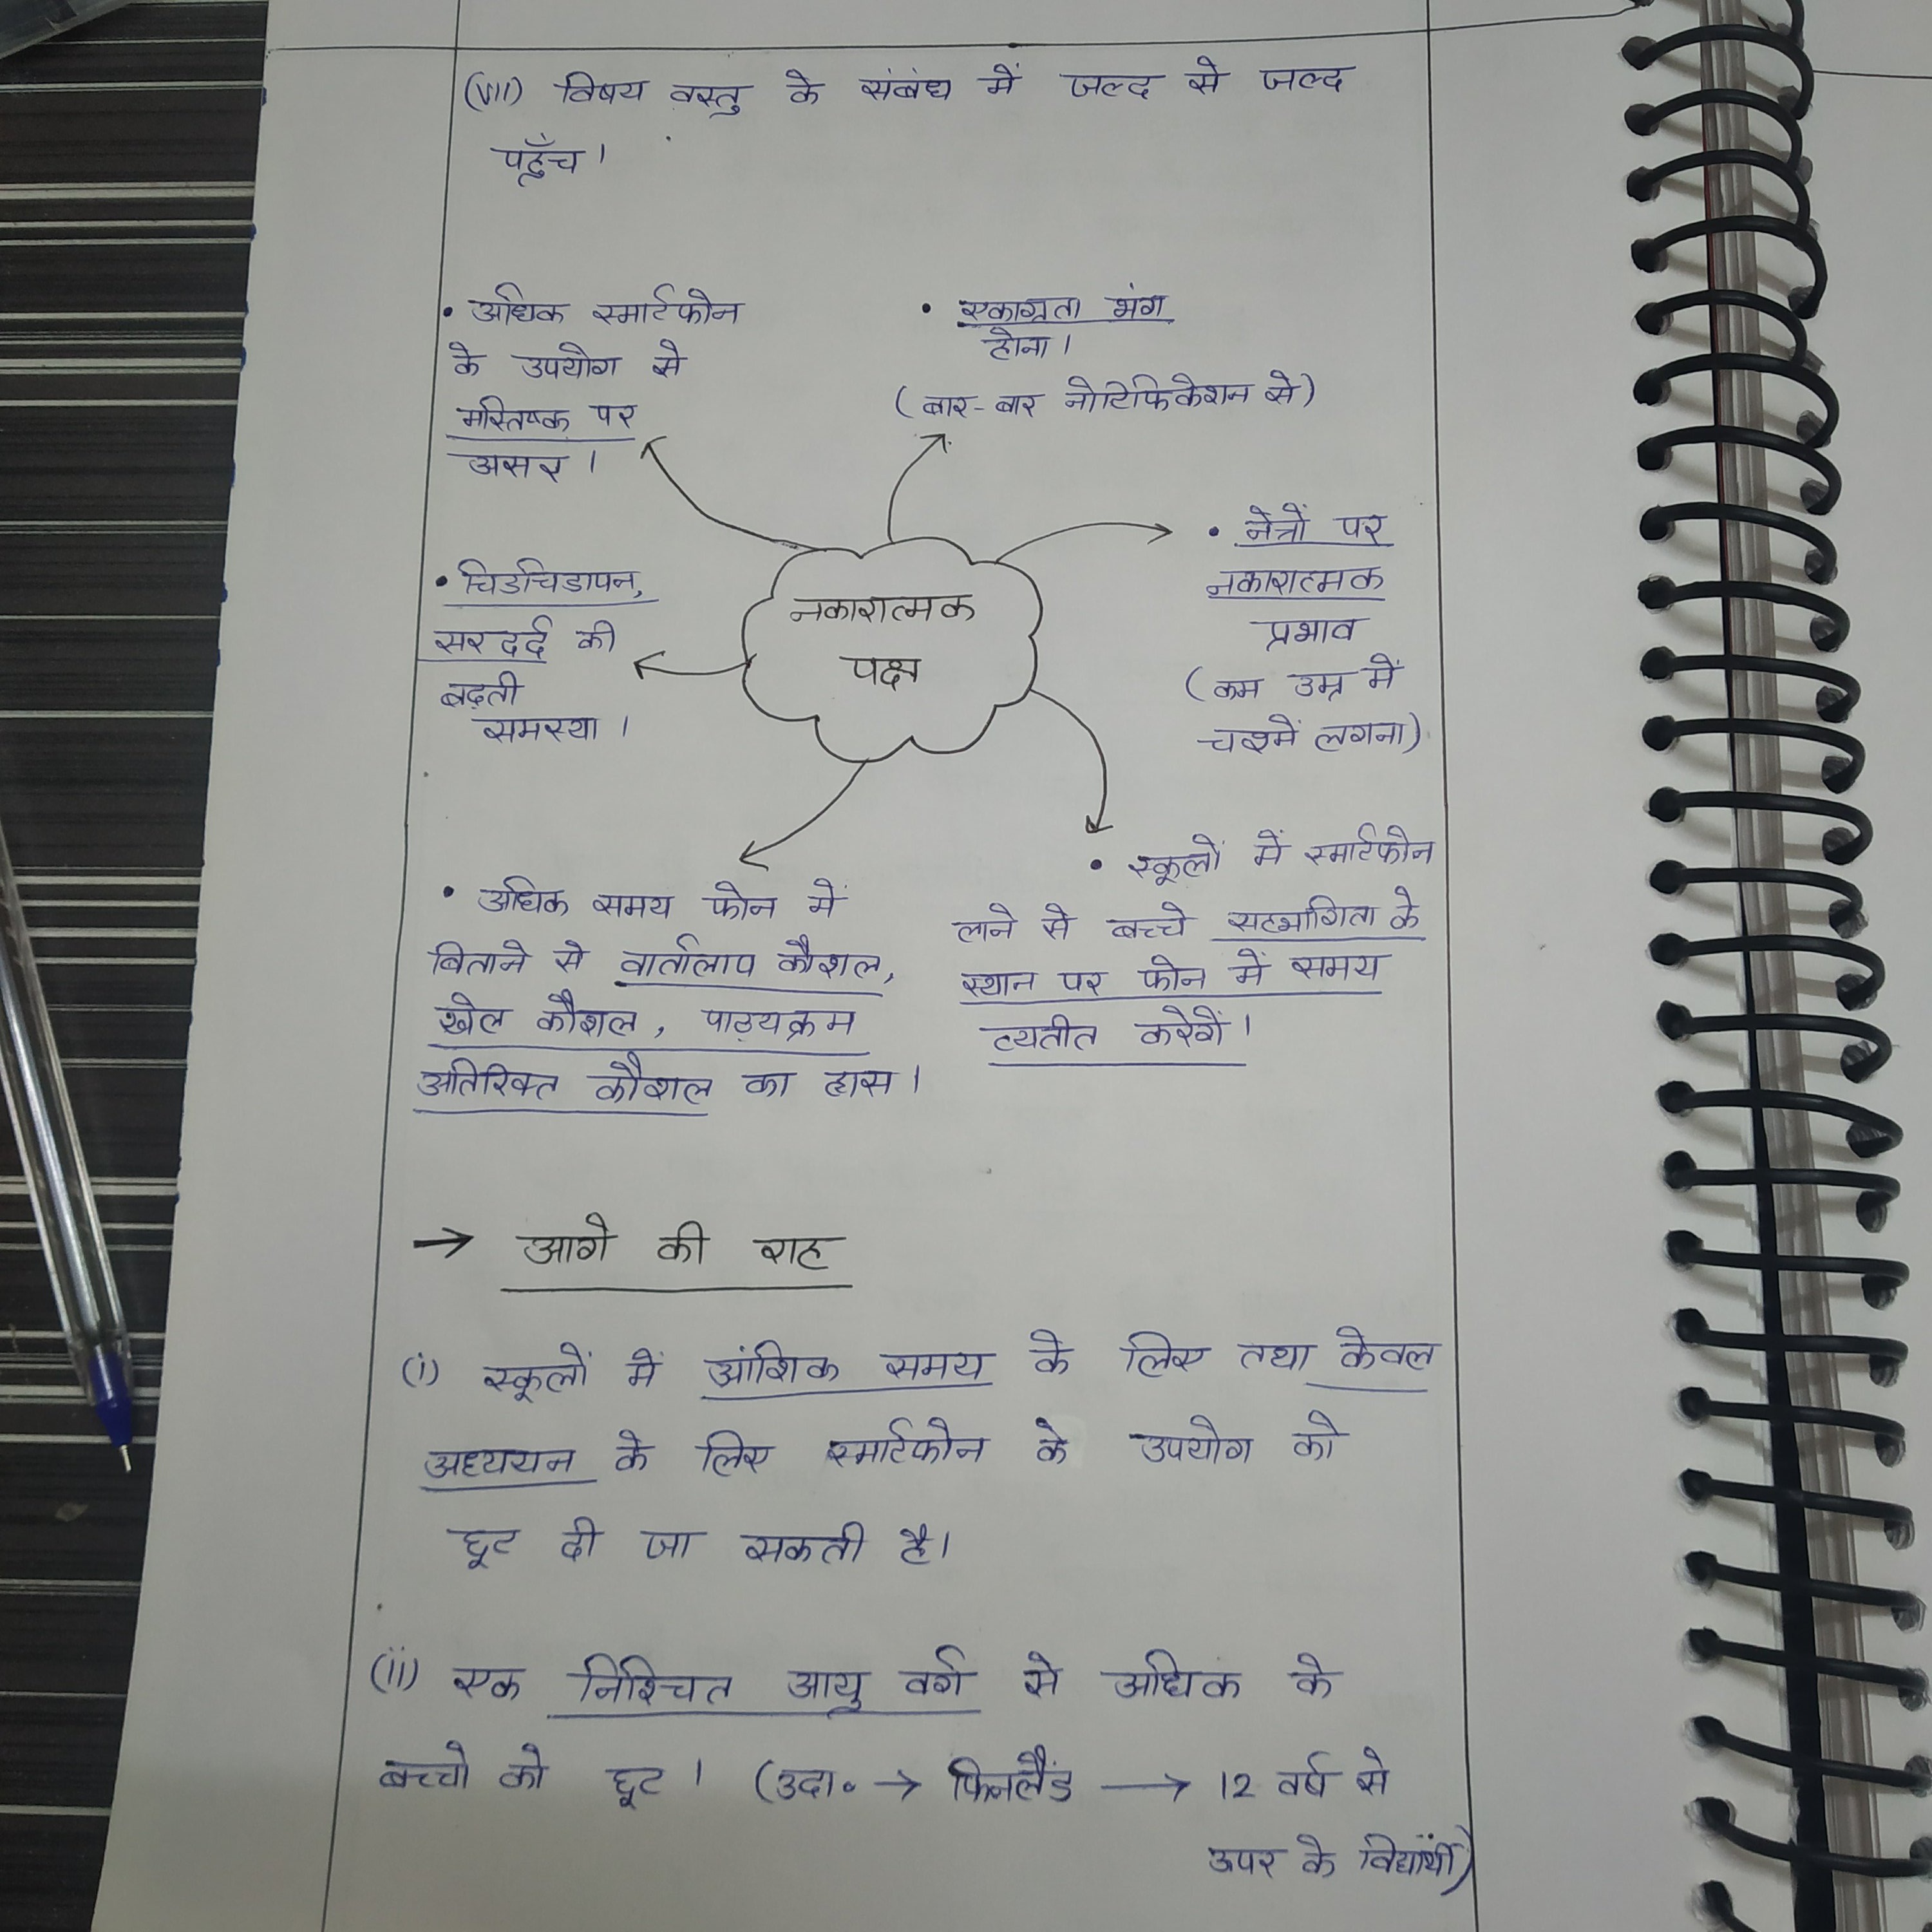 (VII) विषय वस्तु के संबंध में जल्द से जल्द
पहुँच।
• अधिक स्मार्टफोन
के उपयोग से
मस्तिष्क पर
असर।
• एकाग्रता भंग
होना।
(बार-बार नोटिफिकेशन से)
• नेत्रों पर
नकारात्मक
प्रभाव
(कम उम्र में
चश्में लगना)
• चिडचिडापन,
सरदर्द की
बढ़ती
समस्या।
नकारात्मक
पक्ष
• अधिक समय फोन में
बिताने से वार्तालाप कौशल,
खेल कौशल, पाठ्यक्रम
अतिरिक्त कौशल का ह्रास।
• स्कूलों में स्मार्टफोन
लाने से बच्चे सहभागिता के
स्थान पर फोन में समय
व्यतीत करेगें।
→ आगे की राह
(i) स्कूलों में आंशिक समय के लिए तथा केवल
अध्ययन के लिए स्मार्टफोन के उपयोग को
छूट दी जा सकती है।
(ii) एक निश्चित आयु वर्ग से अधिक के
बच्चो को छूट। (उदा० → फिनलैंड → 12 वर्ष से
ऊपर के विद्यार्थी)